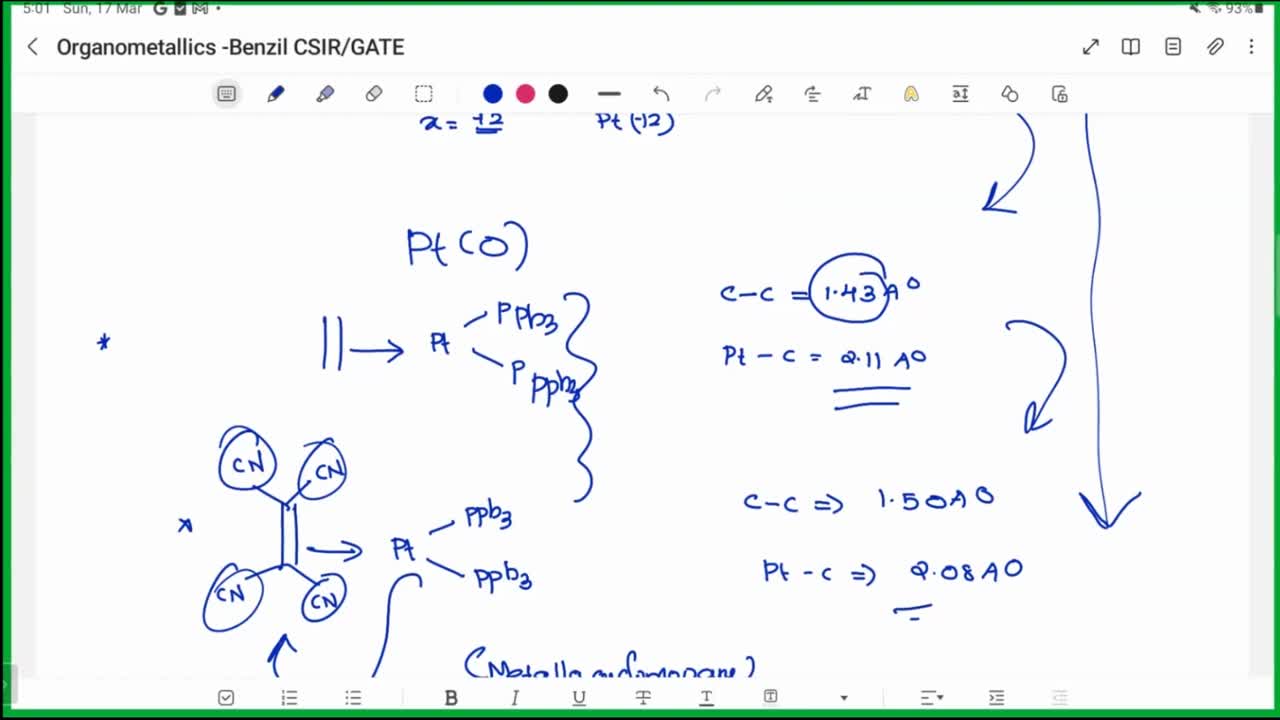 5:01 Sun, 17 Mar G M • 93%
Organometallics -Benzil CSIR/GATE
x = +2 Pt(+2)
Pt(0)
C-C = 1.43 A°
* || → Pt PPh3
Pt - C = 2.11 A°
P PPh3
CN CN
C-C ⇒ 1.50 A°
* → Pt PPh3
PPh3
Pt - C ⇒ 2.08 A°
CN CN
B I U T T